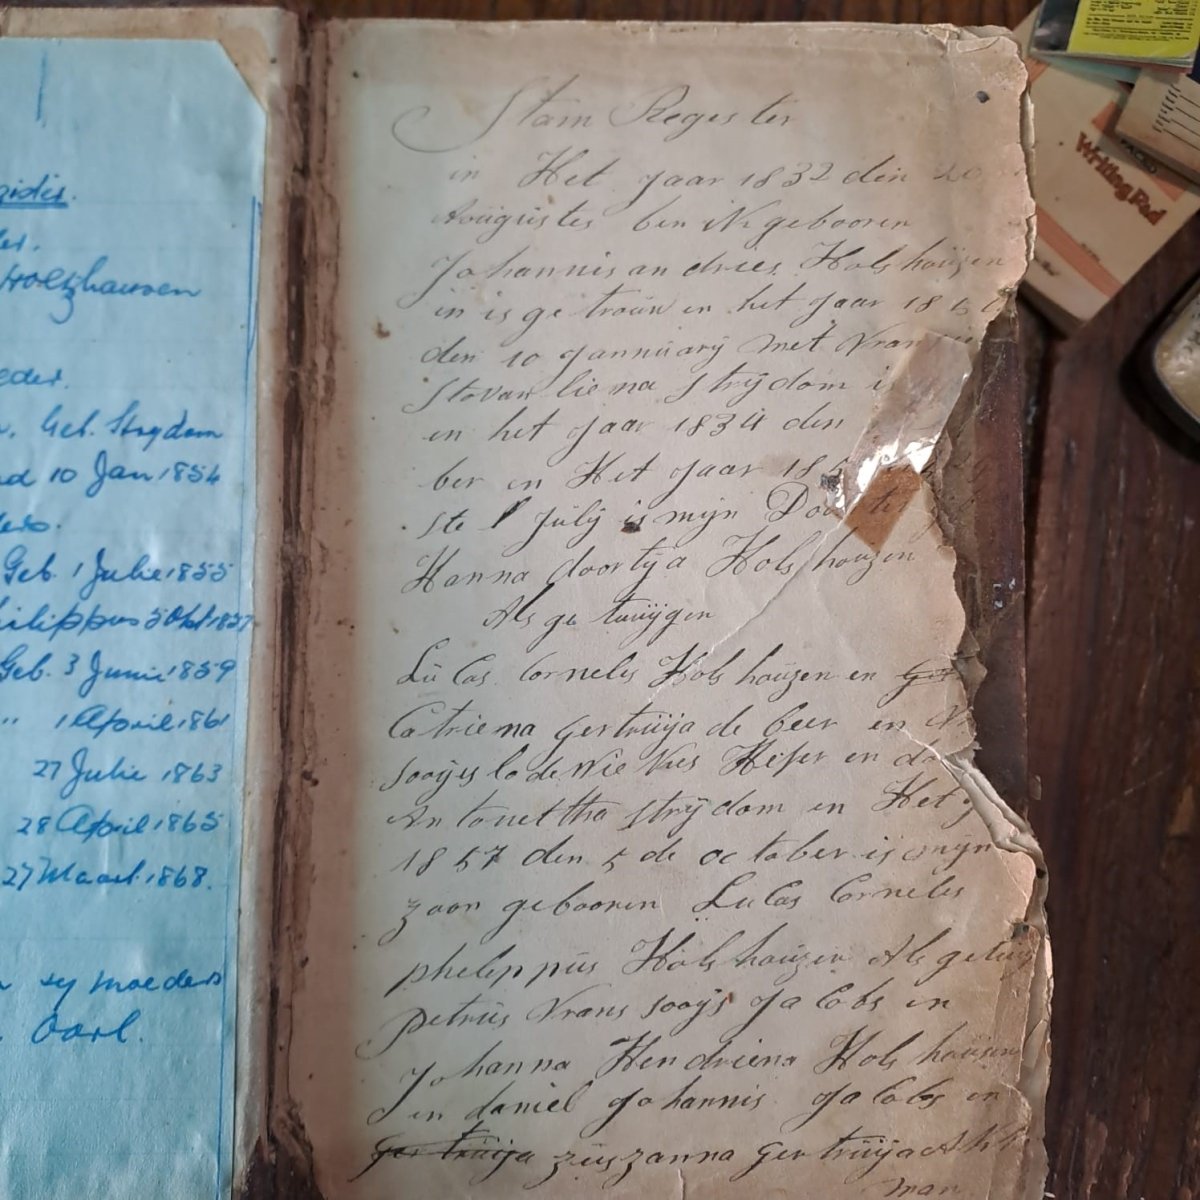 zidis.
Holtzhausen
Geb. Strydom
10 Jan 1854
Geb. 1 Julie 1855
ilippus 5 Okt 1857
Geb. 3 Junie 1859
" 1 April 1861
27 Julie 1863
28 April 1865
27 Maart 1868.
sy moeders
Oorl.
Stam Regester
in Het Jaar 1832 den 20
Aougustes ben ik gebooren
Johannis andries Hols houzen
in is ge trouw en het Jaar 18
den 10 Jannuary Met Vran
Stovan lie na Strydom is
en het Jaar 1834 den
ber en Het Jaar 18
ste 1 July is mijn Doc ter
Hanna doortya Hols houzen
Als ge tuuygen
Lu Cas Cornelis Hols houzen en
Catriena gertruya de beer en
Sooys lodewie kus Heifer en
An tonettha Strydom en Het J
1857 den 5 de october is mijn
zoon gebooren Lu Cas Cornelis
phelippus Hols houzen Als getuig
petrus Vrans Sooys Ja Cobs en
Johanna Hendriena Hols houzen
en daniel Johannis Ja Cobs en
ger truija zuszanna ger truija
man
Writing Pad